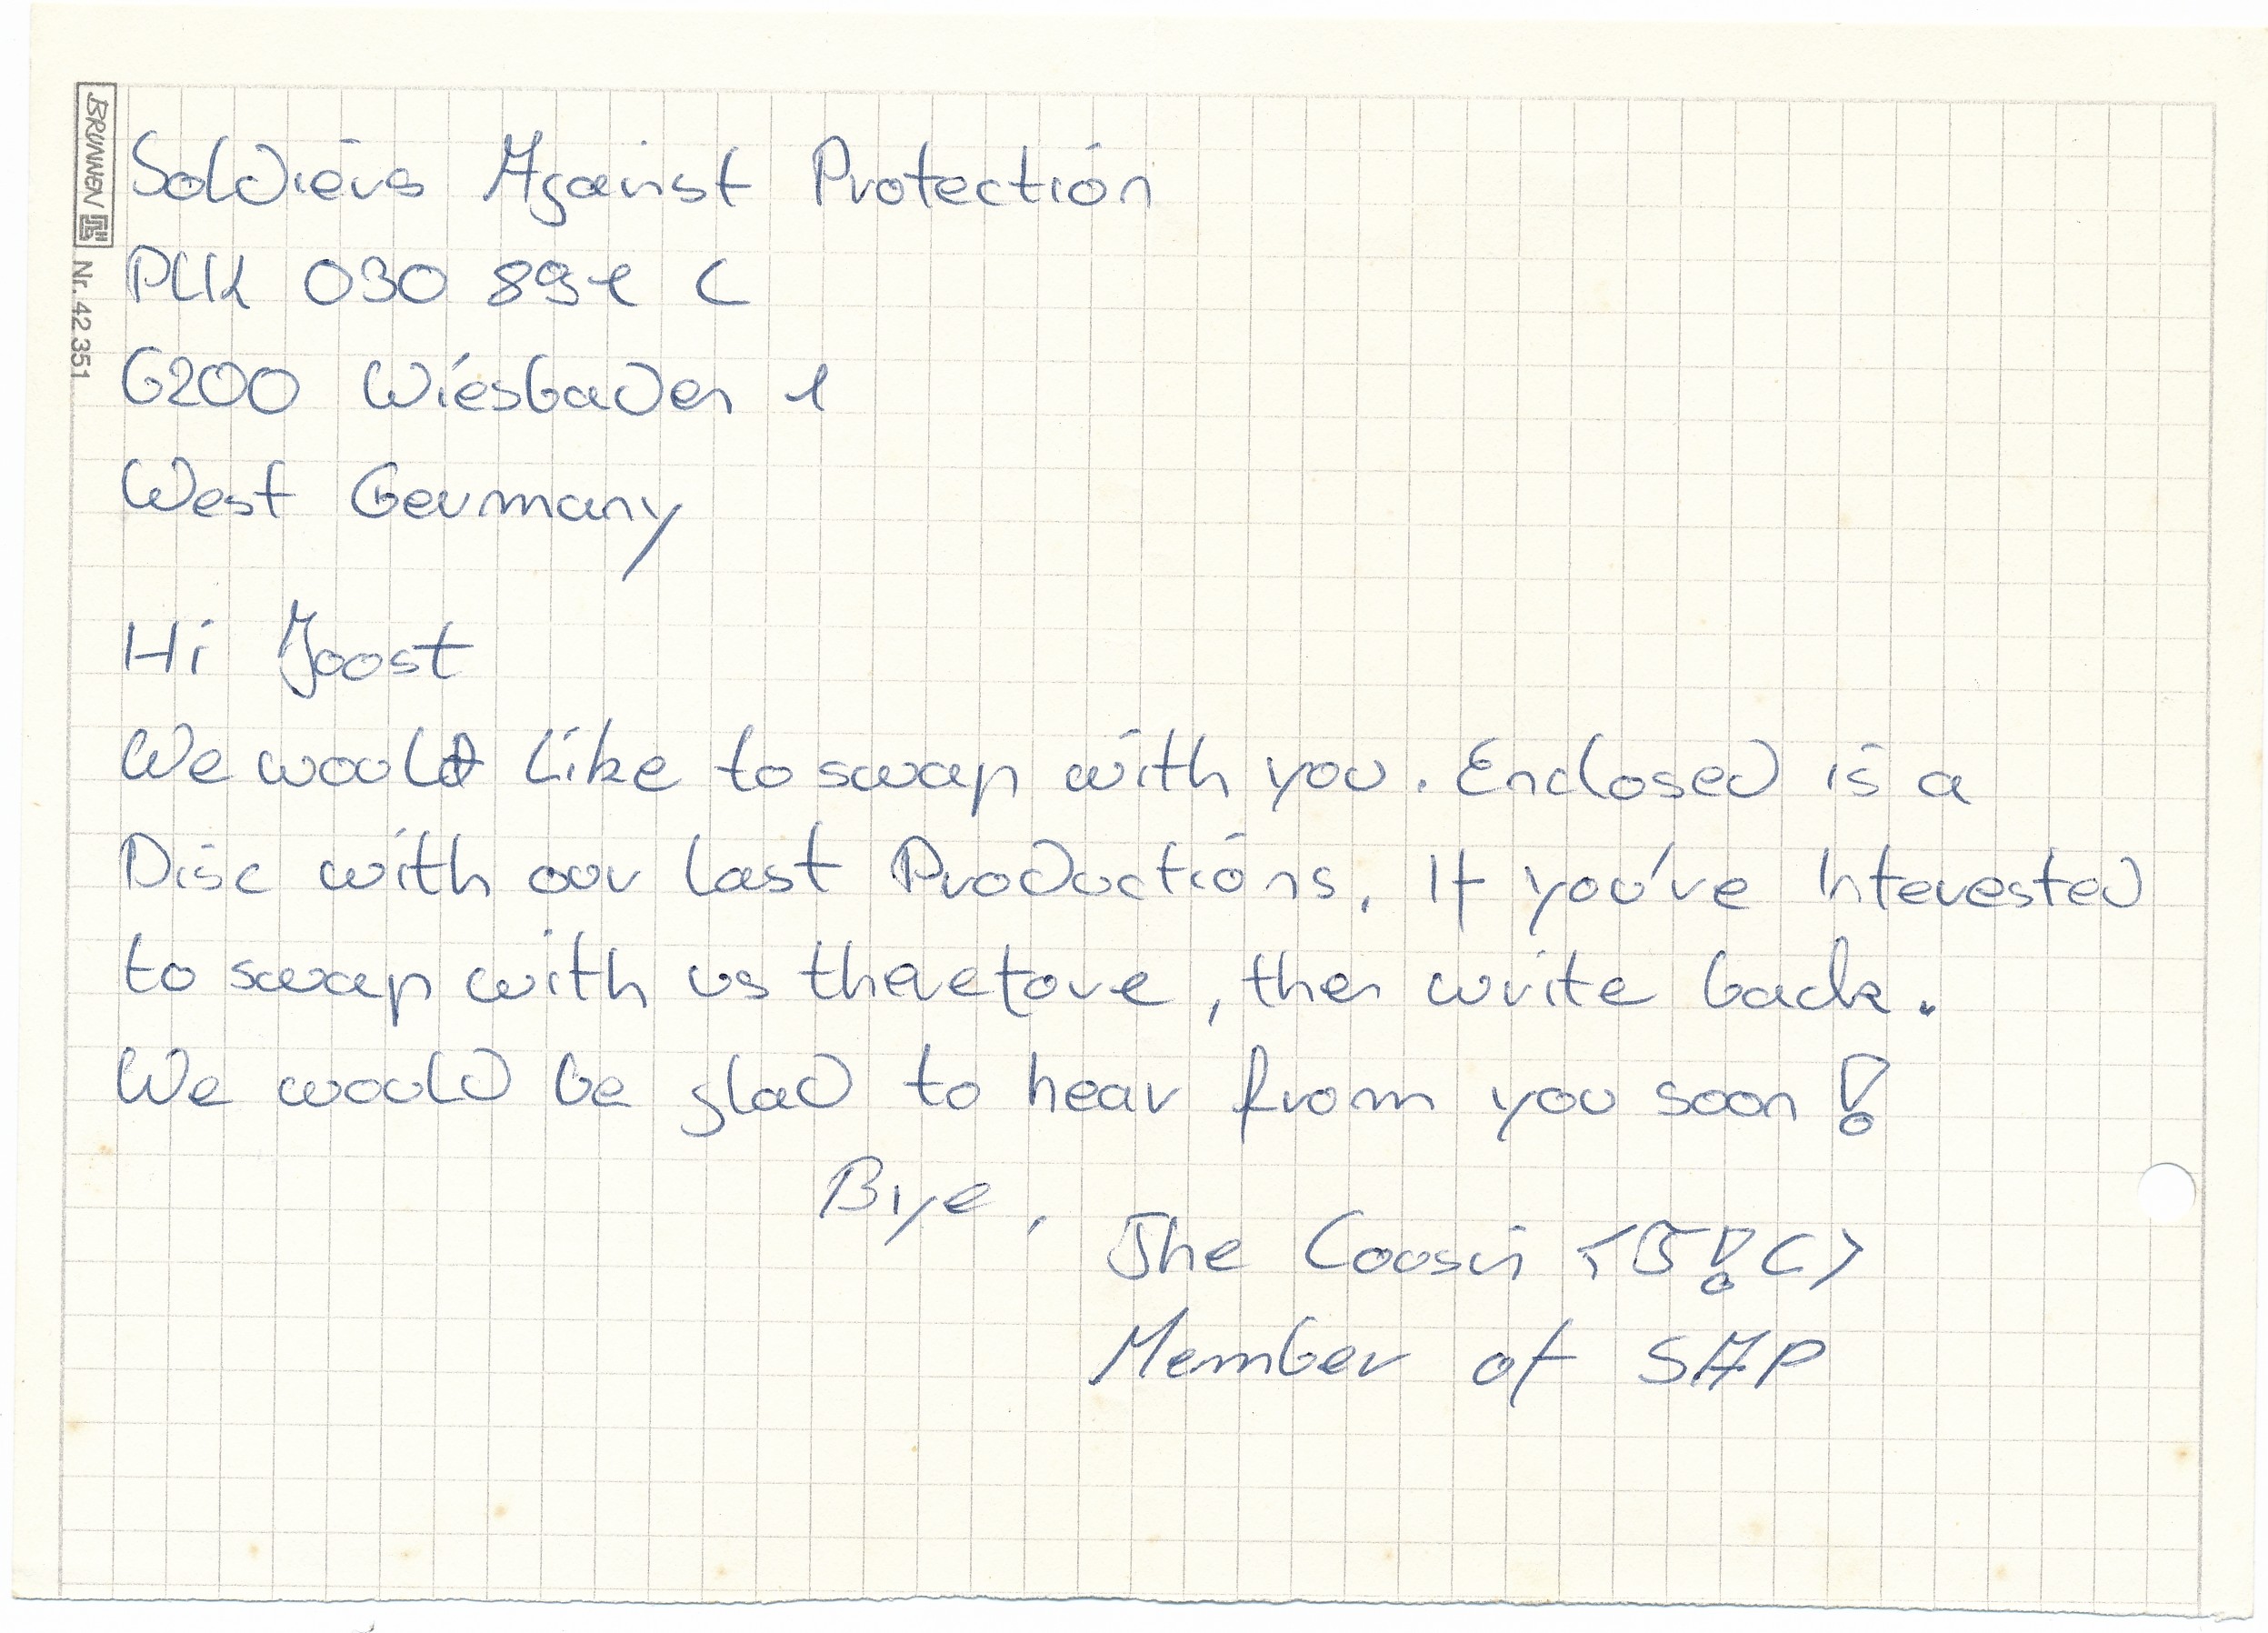 BRUNNEN
Nr. 42 351
Soldiers Against Protection
PLK 030 891 C
6200 Wiesbaden 1
West Germany
Hi Joost
We would like to swap with you. Enclosed is a
Disc with our last Productions. If you've Interested
to swap with us therefore, then write back.
We would be glad to hear from you soon!
Bye,
The Cousin <T!C>
Member of SAP